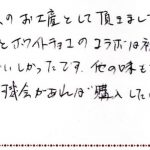 のお土産として頂きまし
とホワイトチョコのコラボは
いしかったです。他の味も
機会があれば購入した